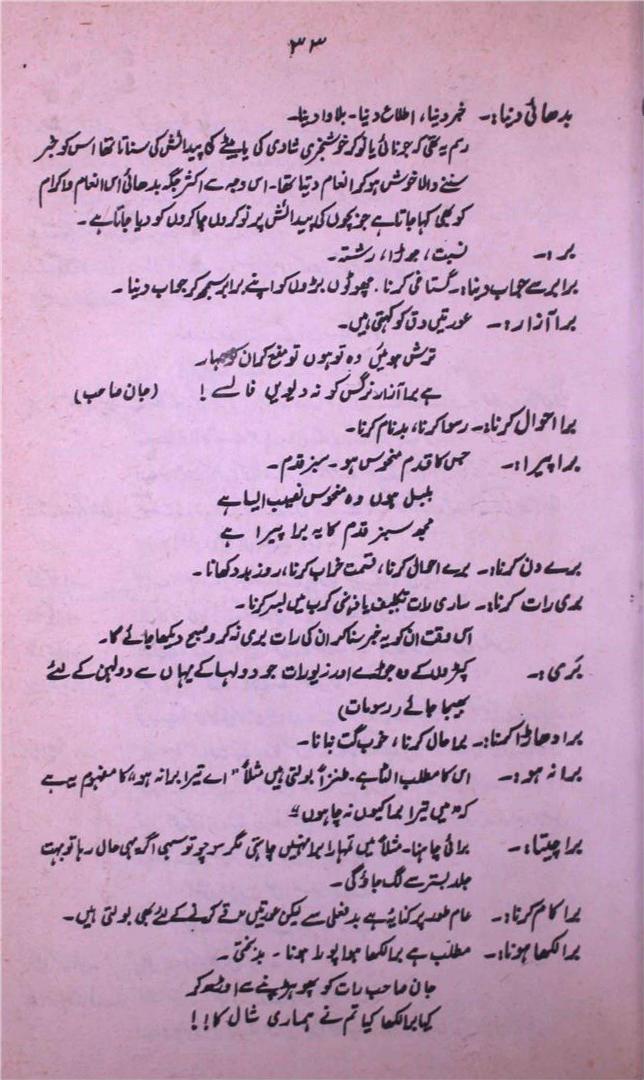 ۳۳
بدھائی دینا:۔ خبر دینا، اطلاع دینا۔ بلاوا دینا۔
رسم یہ تھی کہ جو نائی یا نوکر خوشخبری شادی کی یا بیٹے کی پیدائش کی سناتا تھا اس کو خبر
سننے والا خوش ہوکر انعام دیتا تھا۔ اس وجہ سے اکثر جگہ بدھائی اس انعام و اکرام
کو بھی کہا جاتا ہے جو بچوں کی پیدائش پر نوکروں چاکروں کو دیا جاتا ہے۔
بر:۔ نسبت، جوڑا، رشتہ۔
برابر سے جواب دینا:۔ گستاخی کرنا۔ چھوٹوں بڑوں کو اپنے برابر سمجھ کر جواب دینا۔
برا آزار:۔ عورتیں دق کو کہتی ہیں۔
ترش ہوئیں وہ تو ہوں تو مفع کمان
ہے برا آزار نرگس کو نہ دیویں فالسے! (جان صاحب)
برا احوال کرنا:۔ رسوا کرنا، بدنام کرنا۔
برا پیرا:۔ جس کا قدم منحوس ہو۔ سبز قدم۔
بلبل ہوں وہ منحوس نصیب ایسا ہے
مجھ سبز قدم کا یہ برا پیرا ہے
برے دن کرنا:۔ برے احوال کرنا، قسمت خراب کرنا، روز بد دکھانا۔
بری رات کرنا:۔ ساری رات تکلیف یا ذہنی کرب میں بسر کرنا۔
اس وقت ان کو یہ خبر سنا کر ان کی رات بری نہ کرو صبح دیکھا جائے گا۔
بَری:۔ کپڑوں کے وہ جوڑے اور زیورات جو دولہا کے یہاں سے دولہن کے لئے
بھیجا جائے (رسومات)
برا دھاڑا کرنا:۔ برا حال کرنا، خوب گت بنانا۔
برا نہ ہو:۔ اس کا مطلب الٹا ہے۔ طنزاً بولتی ہیں مثلاً "اے تیرا برا نہ ہو" کا مفہوم یہ ہے
کہ "میں تیرا برا کیوں نہ چاہوں"
برا چیتنا:۔ برائی چاہنا۔ مثلاً میں تمہارا برا نہیں چاہتی مگر سوچو تو سہی اگر یہی حال رہا تو بہت
جلد بستر سے لگ جاؤ گی۔
برا کام کرنا:۔ عام طور پر کنایہ ہے بد فعلی سے لیکن عورتیں قے کرنے کے لئے بھی بولتی ہیں۔
برا لکھا ہونا:۔ مطلب ہے برا لکھا ہوا پورا ہونا۔ بدبختی۔
جان صاحب رات کو پھوہڑپنے سے اوڑھ کر
کیا برا لکھا کیا تم نے ہماری شال کا!!